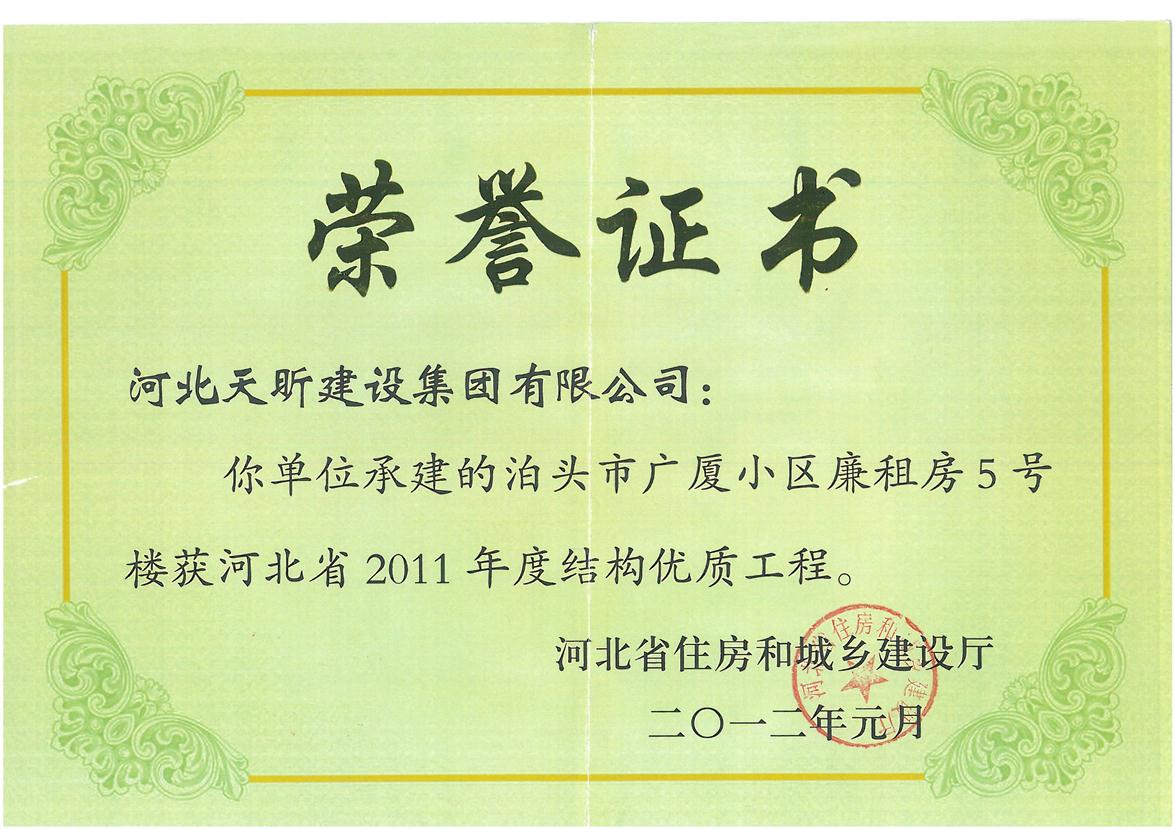 荣誉证书
河北天昕建设集团有限公司：
你单位承建的泊头市广厦小区廉租房5号
楼获河北省2011年度结构优质工程。
河北省住房和城乡建设厅
二〇一二年元月